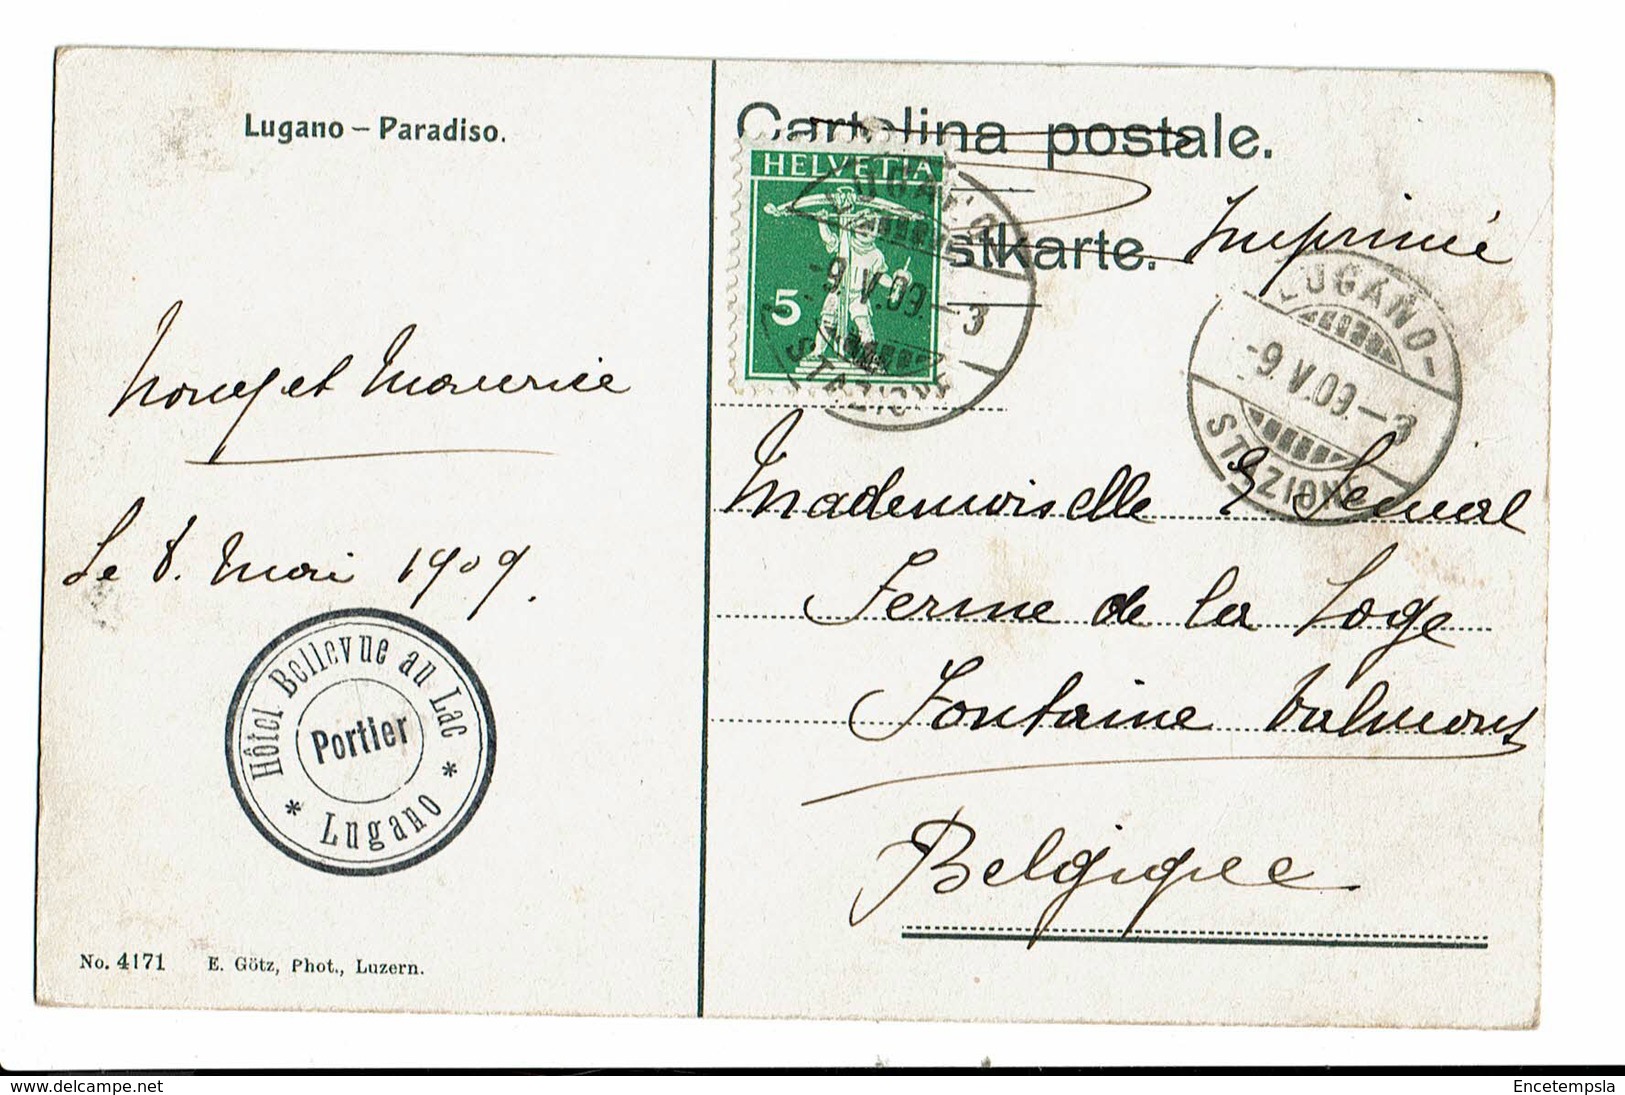 Lugano – Paradiso.
et Maurice
Le 8. Mai 1909.
Hôtel Bellevue au Lac
Portier
* Lugano *
No. 4171 E. Götz, Phot., Luzern.
Cartolina postale.
stkarte.
Imprimé
HELVETIA
5
LUGANO
-9.V.09.-3
STAZIONE
LUGANO
-9.V.09.-3
STAZIONE
Mademoiselle
Ferme de la Loge
Fontaine Valmont
Belgique
Encetempsla
www.delcampe.net